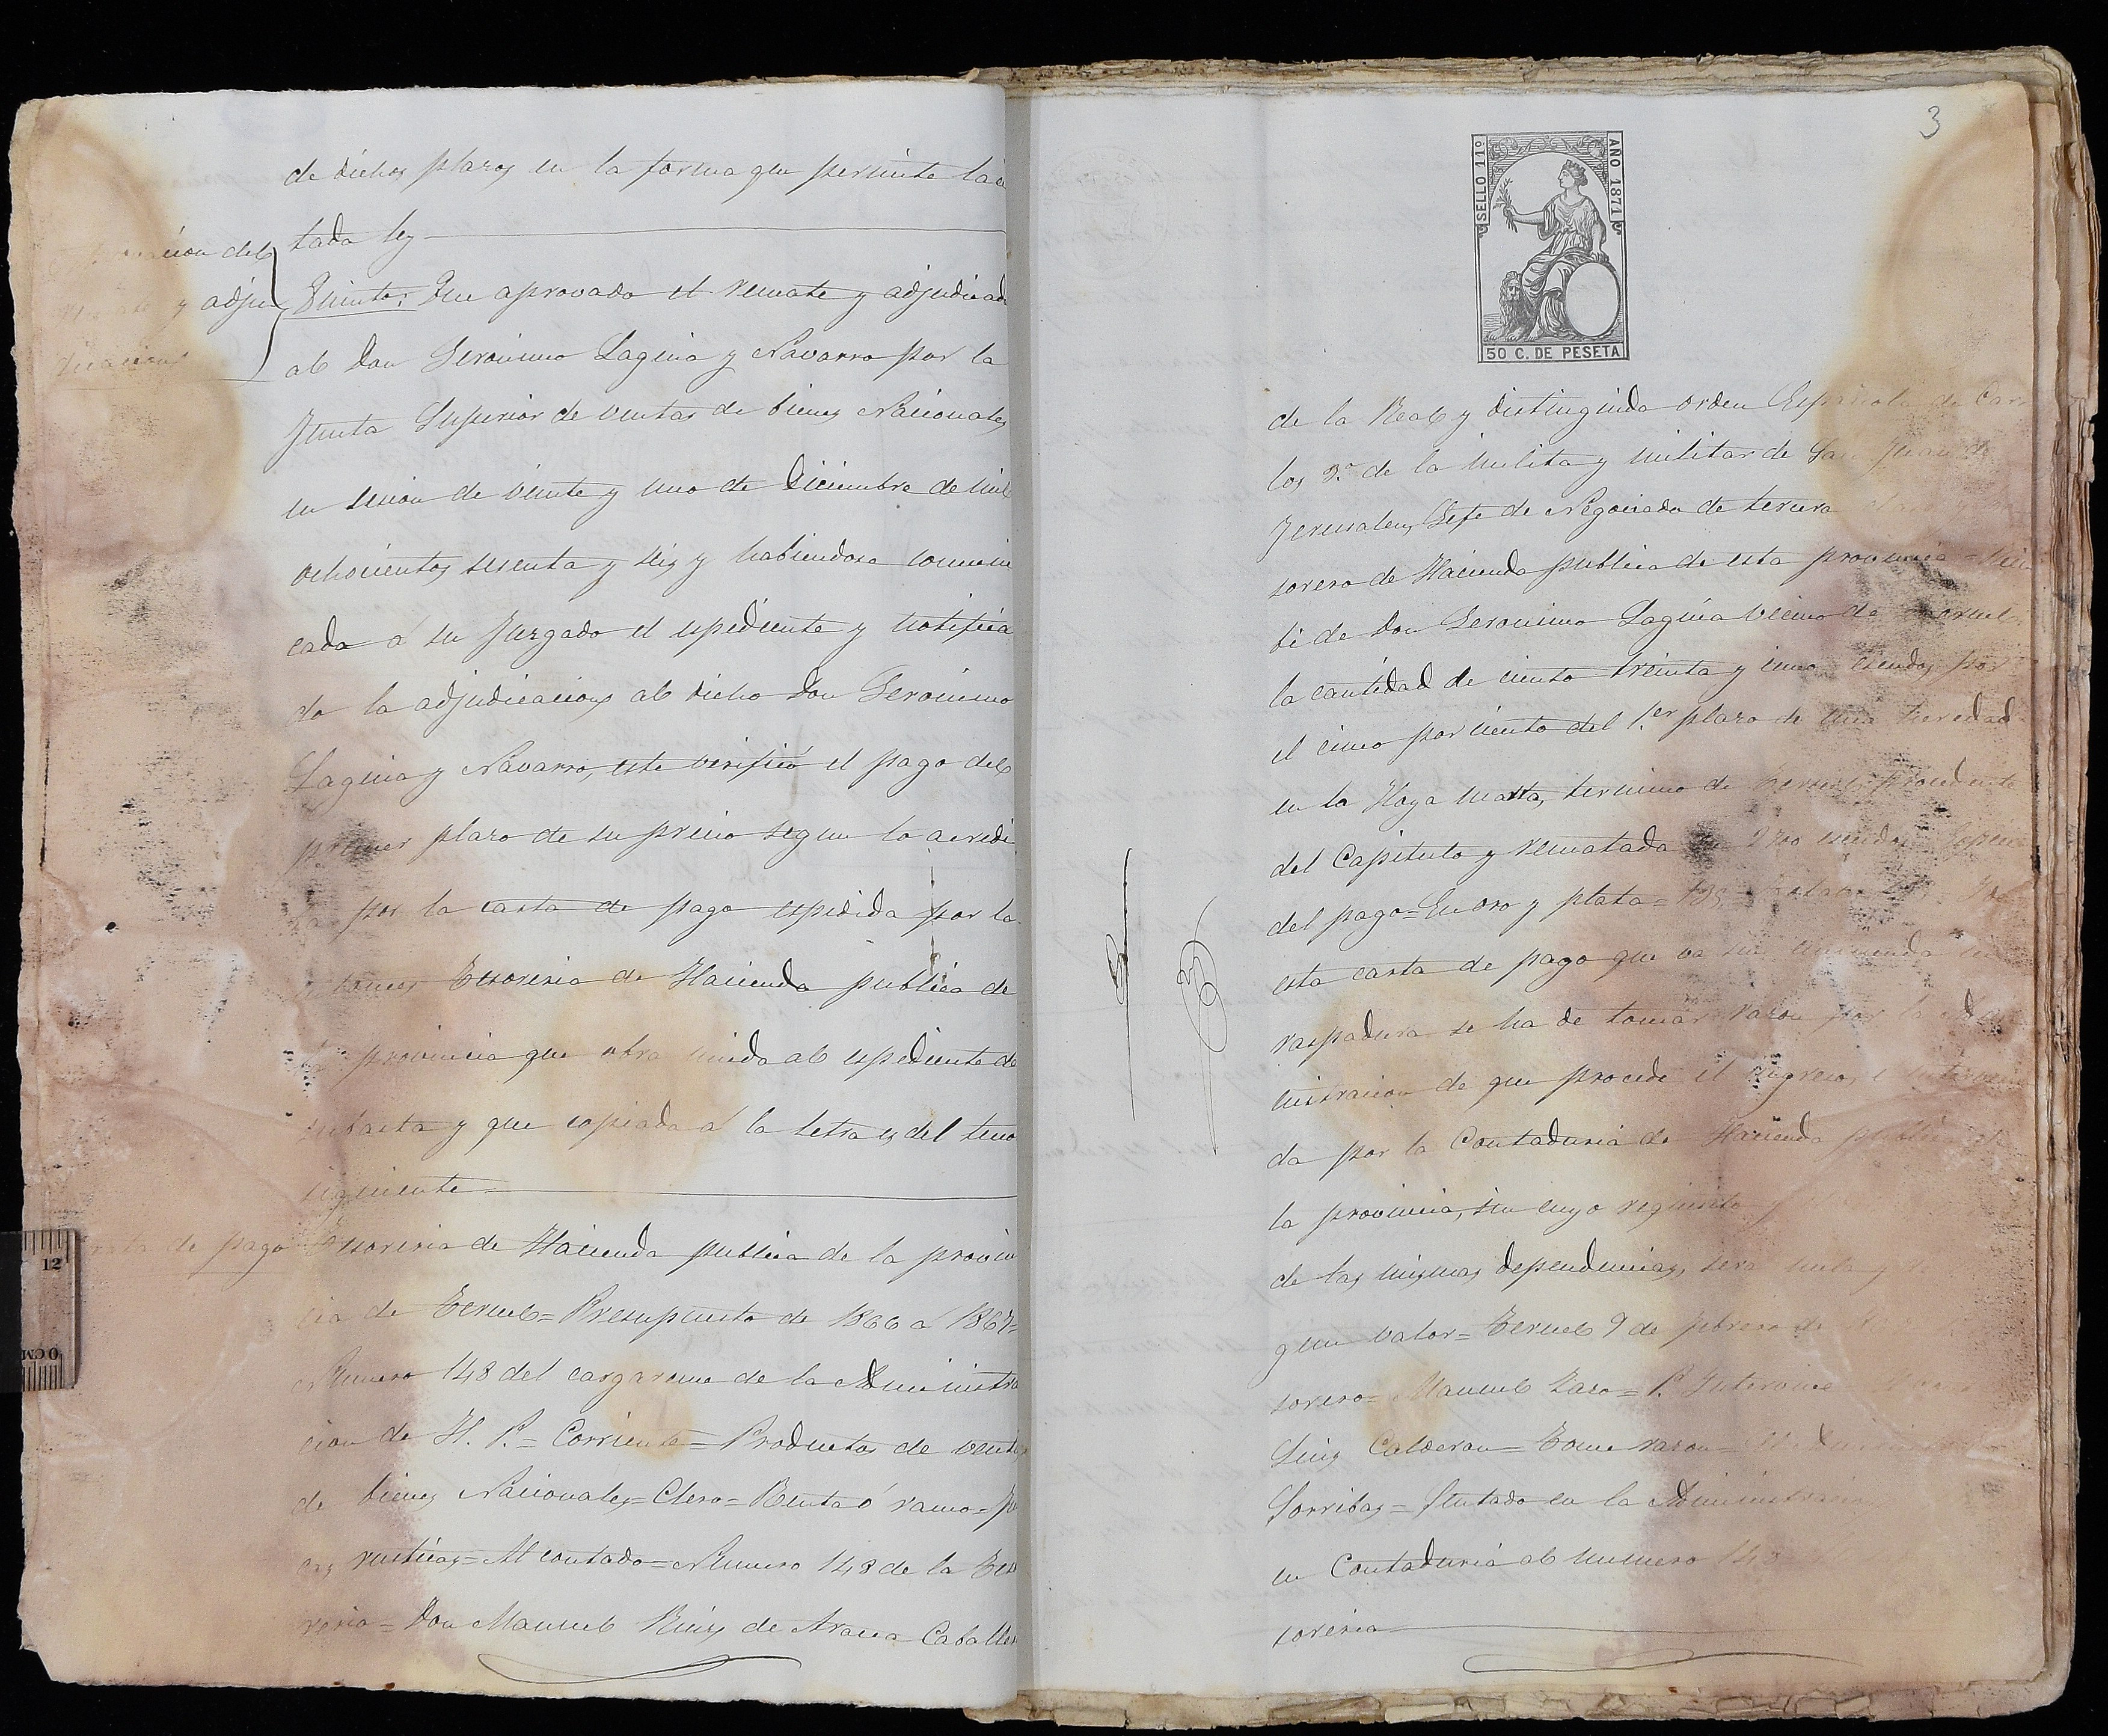 de dichos plazos en la forma que permite la ci
tada ley
cion del
y adju
dicacion
Quinto: Que aprovado el remate y adjudicado
al Don Geronimo Laguia y Navarro por la
Junta Superior de ventas de bienes Nacionales
en sesion de veinte y uno de Diciembre de mil
ochocientos sesenta y seis y habiendose comuni
cado á su Juzgado el espediente y notifica
do la adjudicacion al dicho Don Geronimo
Laguia y Navarro, este verificó el pago del
primer plazo de su precio segun lo acredi
ta por la carta de pago espedida por la
entonces Tesoreria de Hacienda publica de
la provincia que obra unida al espediente de
subasta y que copiada á la letra es del teno
siguiente
carta de pago
Tesoreria de Hacienda publica de la provin
cia de Teruel = Presupuesto de 1866 á 1867=
Numero 148 del cargareme de la Administra
cion de H. P. = Corriente = Productos de ventas
de bienes Nacionales = Clero = Renta ó ramo = fin
cas rusticas = Al contado = Numero 148 de la Teso
reria = Don Manuel Ruiz de Arana Caballero
3
SELLO 11º
AÑO 1871
50 C. DE PESETA
de la Real y distinguida orden Española de Car
los 3.º de la inclita y militar de San Juan de
Jerusalen, Gefe de Negociado de tercera
sorero de Hacienda publica de esta provincia = Reci
bi de Don Geronimo Laguia vecino de Teruel
la cantidad de ciento treinta y cinco escudos por
el cinco por ciento del 1.er plazo de una heredad
en la Hoya matta, termino de Teruel procedente
del Capitulo y rematada en 2700 escudos
del pago = En oro y plata = 135
esta carta de pago que va sin enmienda ni
raspadura se ha de tomar razon por la Admi
nistracion de que procede el ingreso, é interveni
da por la Contaduria de Hacienda publica de
la provincia, sin cuyo requisito
de las mismas dependencias, sera nula y
gun valor = Teruel 9 de febrero de
sorero = Manuel = P. Intervine
Luis Calderon = Tome razon =
Sorribas = Sentado en la Administracion
en Contaduria al numero 148
soreria